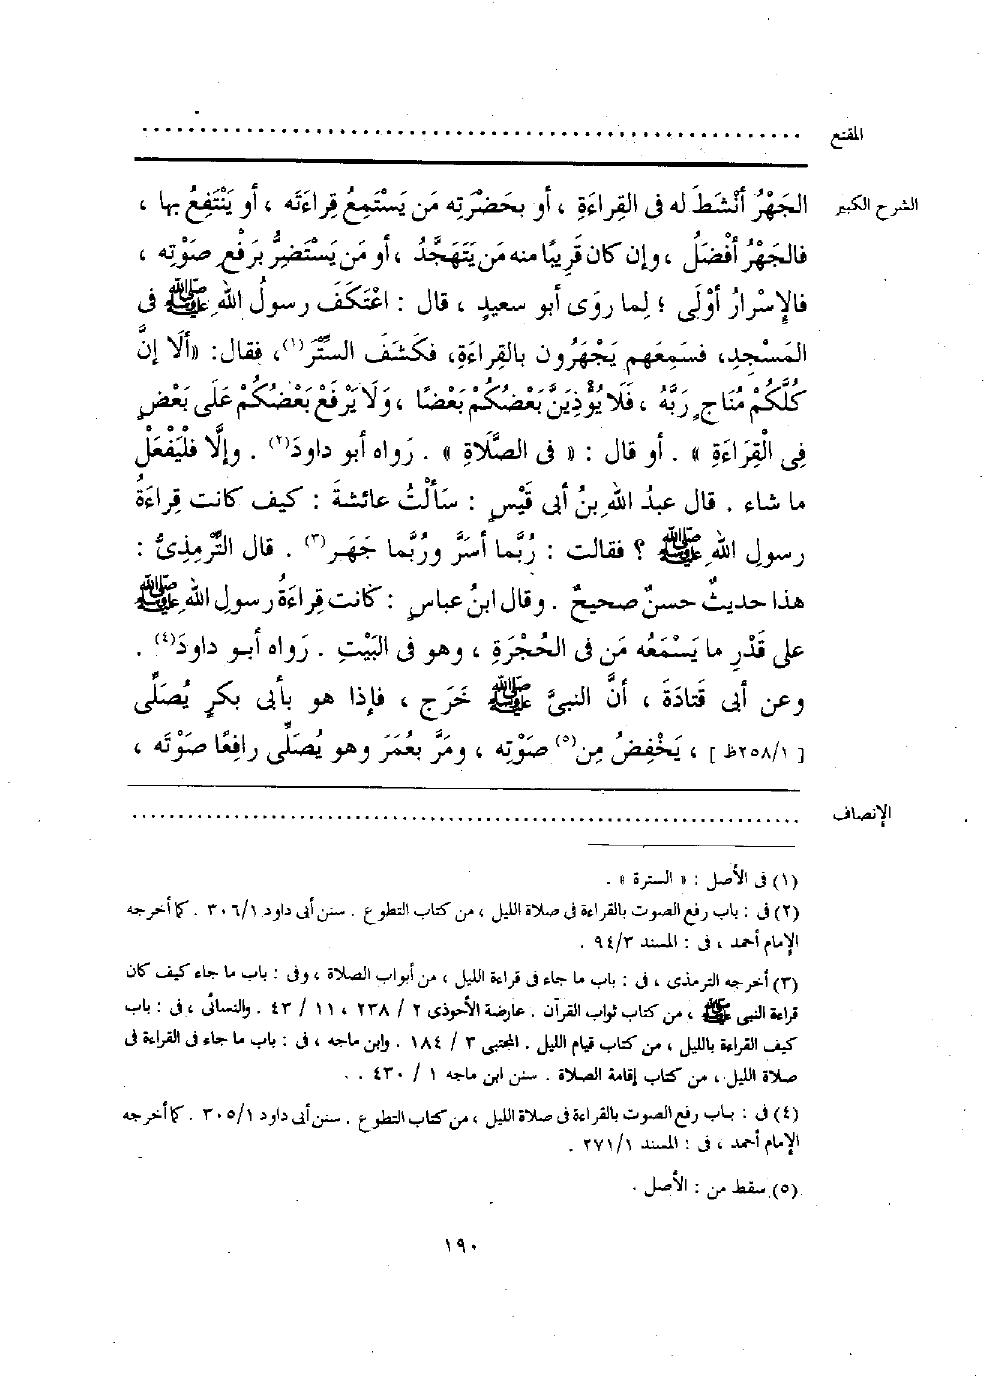 المقنع
الشرح الكبير
الجَهْرُ أنْشَطَ له فى القِراءَةِ ، أو بحَضْرَتِه مَن يَسْتَمِعُ قِراءَتَه ، أو يَنْتَفِعُ بها ،
فالجَهْرُ أفْضَلُ ، وإن كان قَرِيبًا منه مَن يَتَهَجَّدُ ، أو مَن يَسْتَضِرُّ برَفْعِ صَوْتِه ،
فالإِسْرارُ أوْلَى ؛ لِما روَى أبو سعيدٍ ، قال : اعْتَكَفَ رسولُ اللهِ ﷺ فى
المَسْجِدِ، فسَمِعَهم يَجْهَرُون بالقِراءَةِ، فكَشَف السِّتْرَ(١)، فقال: «ألَا إنَّ
كُلَّكُمْ مُنَاجٍ رَبَّهُ ، فَلَا يُؤْذِيَنَّ بَعْضُكُمْ بَعْضًا ، وَلَا يَرْفَعْ بَعْضُكُمْ عَلَى بَعْضٍ
فِى الْقِرَاءَةِ » . أو قال : « فى الصَّلَاةِ » . رَواه أبو داودَ(٢) . وإلَّا فلْيَفْعَلْ
ما شاء . قال عبدُ اللهِ بنُ أبى قَيْسٍ : سَألْتُ عائشةَ : كيف كانت قِراءَةُ
رسولِ اللهِ ﷺ ؟ فقالت : رُبَّما أسَرَّ ورُبَّما جَهَر(٣) . قال التِّرْمِذِىُّ :
هذا حديثٌ حسنٌ صحيحٌ . وقال ابنُ عباسٍ : كانت قِراءَةُ رسولِ اللهِ ﷺ
على قَدْرِ ما يَسْمَعُه مَن فى الحُجْرَةِ ، وهو فى البَيْتِ . رَواه أبو داودَ(٤) .
وعن أبى قَتادَةَ ، أنَّ النبىَّ ﷺ خَرَج ، فإذا هو بأبى بكرٍ يُصَلِّى
[ ٢٥٨/١ظ ] ، يَخْفِضُ مِن(٥) صَوْتِه ، ومَرَّ بعُمَرَ وهو يُصَلِّى رافِعًا صَوْتَه ،
الإنصاف
(١) فى الأصل : « السترة » .
(٢) فى : باب رفع الصوت بالقراءة فى صلاة الليل ، من كتاب التطوع . سنن أبى داود ٣٠٦/١ . كما أخرجه
الإمام أحمد ، فى : المسند ٩٤/٣ .
(٣) أخرجه الترمذى ، فى : باب ما جاء فى قراءة الليل ، من أبواب الصلاة ، وفى : باب ما جاء كيف كان
قراءة النبى ﷺ ، من كتاب ثواب القرآن . عارضة الأحوذى ٢ / ٢٣٨ ، ١١ / ٤٣ . والنسائى ، فى : باب
كيف القراءة بالليل ، من كتاب قيام الليل . المجتبى ٣ / ١٨٤ . وابن ماجه ، فى : باب ما جاء فى القراءة فى
صلاة الليل ، من كتاب إقامة الصلاة . سنن ابن ماجه ١ / ٤٣٠ . .
(٤) فى : باب رفع الصوت بالقراءة فى صلاة الليل ، من كتاب التطوع . سنن أبى داود ٣٠٥/١ . كما أخرجه
الإمام أحمد ، فى : المسند ٢٧١/١ .
(٥) سقط من : الأصل .
١٩٠